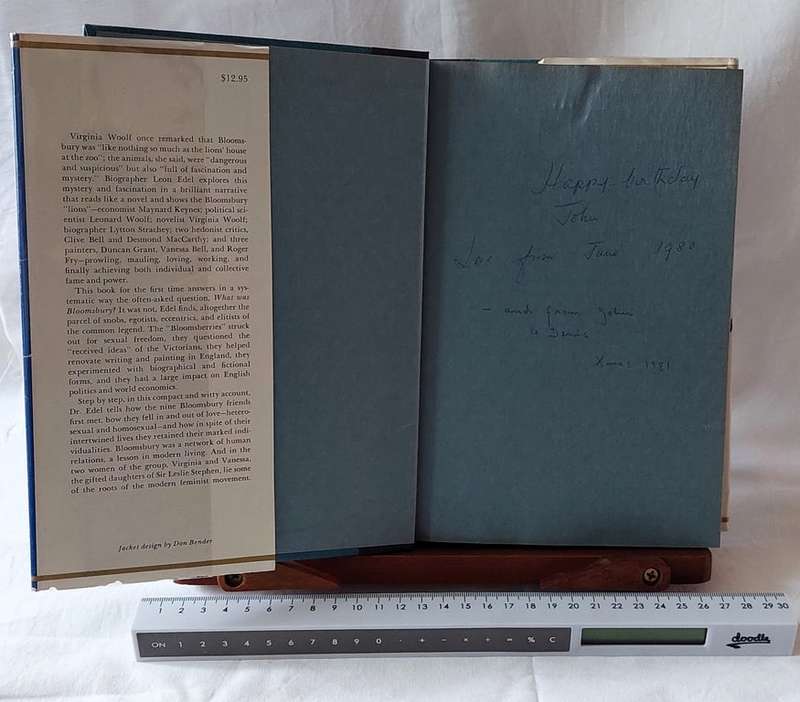 $12.95
Virginia Woolf once remarked that Blooms-
bury was "like nothing so much as the lions' house
at the zoo"; the animals, she said, were "dangerous
and suspicious" but also "full of fascination and
mystery." Biographer Leon Edel explores this
mystery and fascination in a brilliant narrative
that reads like a novel and shows the Bloomsbury
"lions"—economist Maynard Keynes; political sci-
entist Leonard Woolf; novelist Virginia Woolf;
biographer Lytton Strachey; two hedonist critics,
Clive Bell and Desmond MacCarthy; and three
painters, Duncan Grant, Vanessa Bell, and Roger
Fry—prowling, mauling, loving, working, and
finally achieving both individual and collective
fame and power.
This book for the first time answers in a sys-
tematic way the often-asked question, What was
Bloomsbury? It was not, Edel finds, altogether the
parcel of snobs, egotists, eccentrics, and elitists of
the common legend. The "Bloomsberries" struck
out for sexual freedom, they questioned the
"received ideas" of the Victorians, they helped
renovate writing and painting in England, they
experimented with biographical and fictional
forms, and they had a large impact on English
politics and world economics.
Step by step, in this compact and witty account,
Dr. Edel tells how the nine Bloomsbury friends
first met, how they fell in and out of love—hetero-
sexual and homosexual—and how in spite of their
intertwined lives they retained their marked indi-
vidualities. Bloomsbury was a network of human
relations, a lesson in modern living. And in the
two women of the group, Virginia and Vanessa,
the gifted daughters of Sir Leslie Stephen, lie some
of the roots of the modern feminist movement.
Jacket design by Don Bender
Happy birthday
John
Love from June 1980
- and from John
Xmas 1981
1 2 3 4 5 6 7 8 9 10 11 12 13 14 15 16 17 18 19 20 21 22 23 24 25 26 27 28 29 30
ON 1 2 3 4 5 6 7 8 9 0 · + − × ÷ = % C
doodle